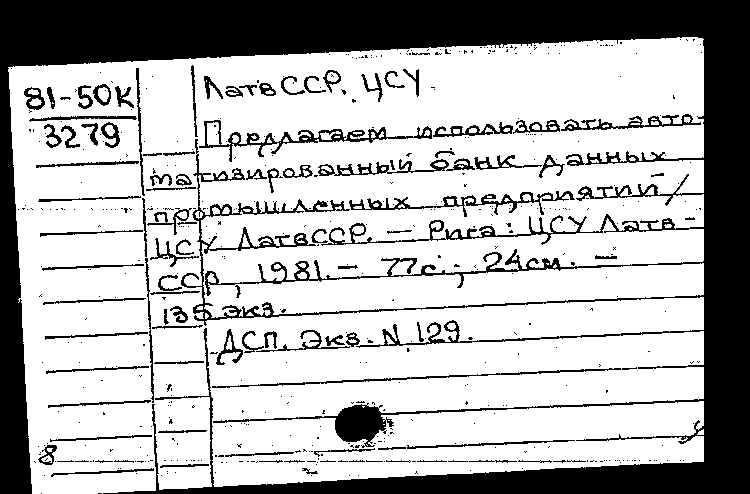 81-50К
3279
ЛатвССР. ЦСУ.
Предлагаем использовать авто-
матизированный банк данных
промышленных предприятий /
ЦСУ ЛатвССР. — Рига: ЦСУ Латв-
ССР, 1981. — 77с.; 24см. —
135 экз.
ДСП. Экз. N 129.
8